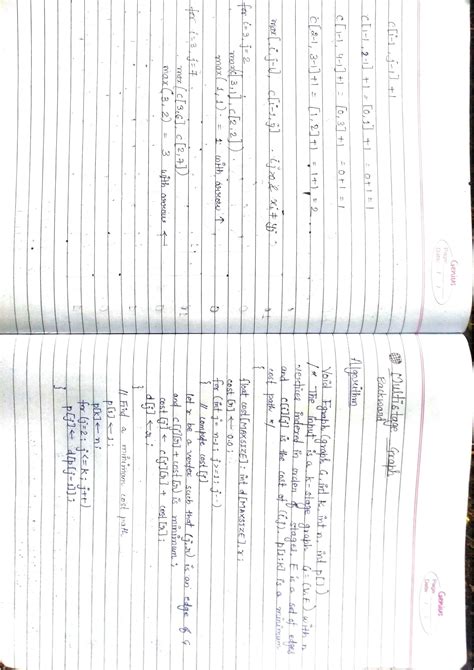 c[i-1, j-1]+1
c[1-1, 2-1]+1 = [0,1]+1 = 0+1=1
c[1-1, 4-1]+1 = [0,3]+1 = 0+1=1
c[2-1, 3-1]+1 = [1,2]+1 = 1+1=2
max[i,j-1], c[i-1,j] i,j>0 & xi≠yj
for i=3, j=2
max(c[3,1], c[2,2])
max(1,1) = 1 with arrow ↑
for i=3, j=7
max(c[3,6], c[2,7])
max(3,2) = 3 with arrow ←
Multistage Graph
Backward
Algorithm
Void Fgraph(graph G, int k, int n, int p[])
/* The input is a k-stage graph G=(V,E) with n
vertices indexed in order of stages. E is a set of edges
and c[i][j] is the cost of (i,j). p[1:k] is a minimum
cost path */
{
float cost[MAXSIZE]; int d[MAXSIZE], r;
cost[n] ← 0.0;
for (int j=n-1; j>=1; j--)
{ // compute cost[j]
let r be a vertex such that (j,r) is an edge of G
and c[j][r] + cost[r] is minimum;
cost[j] ← c[j][r] + cost[r];
d[j] ← r;
}
// Find a minimum cost path
p[1] ← 1;
p[k] ← n;
for (j=2; j<=k; j++)
p[j] ← d[p[j-1]];
}